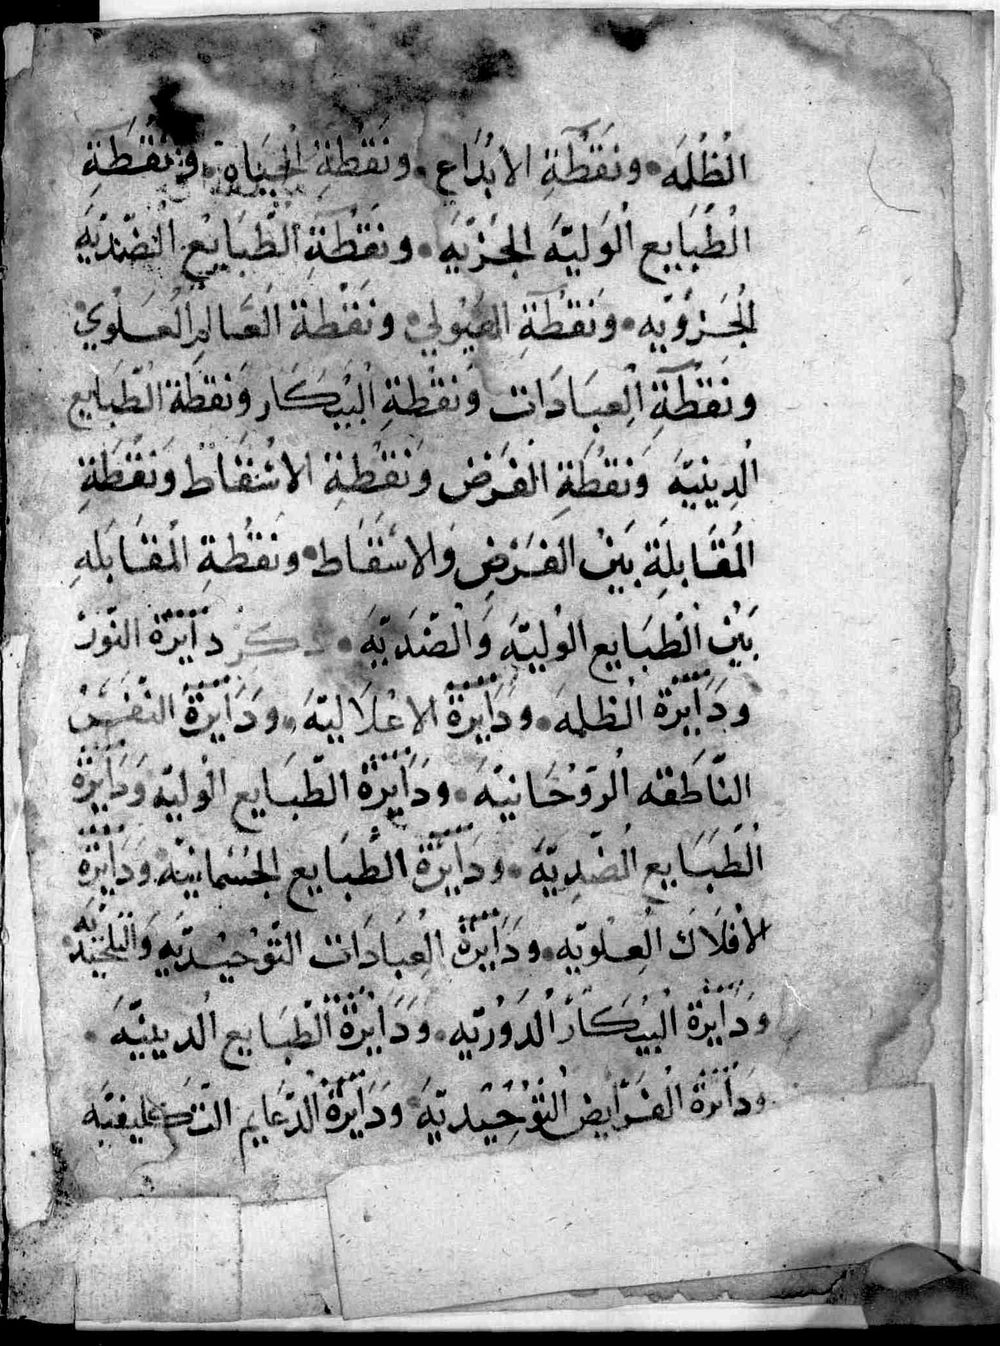 الْظُلْمَه • ونَقْطَةِ الابْدَاعِ • ونَقْطَةِ الْحَيَاة • ونُقْطَةِ
الْطَبَايِع الْوَليّه الجُزْيّه • ونَقْطَةِ الطَّبَايِع الْضّدّيَه
الْجُزْوِّيَه • ونَقْطَةِ الهَيُولي • ونَقْطَة العَالمِ العَلْوي
ونَقْطَةِ الْعِبَادَات ونَقْطةِ الْبيْكَار ونَقْطَة الطّبَايع
الْدِينيّه ونقْطَةِ الْفَرْض ونَقْطَةِ الاسْقَاط ونَقْطَةِ
الْمُقَابلَةِ بَيْن الفَرْضِ وَالاسْقَاط • ونَقْطَةِ الْمقَابَلهِ
بَيْن الْطَبَايع الوْليّه وَالْضّدّيَه • ذكر دَايْرَة النّوْر
ودَايْرَة الْظلمه • ودَايْرَةُ الاعْلَاليّه • ودَايْرَةُ النّفَسْ
النّاطقه الْروْحَانيّه • ودَايْرَةُ الطّبَايع الْوليّه ودَايْرَةُ
الْطَبَايع الْضّدِيّه • ودَايْرَةُ الطّبَايع الجُسْمانيّه ودَايْرَةُ
الافْلَاك الْعِلْويّه • ودَايْرَةُ الْعِبَادَات التّوْحيْديّه
ودَايْرَة الْبيْكَار الْدَوْريّه • ودَايْرَةُ الْطّبَايع الْدينيّه •
ودَايْرَةُ الْفَرَايِض الْتوْحيْديّه ودَايْرَةُ الدّعَايم التّكليفيّه